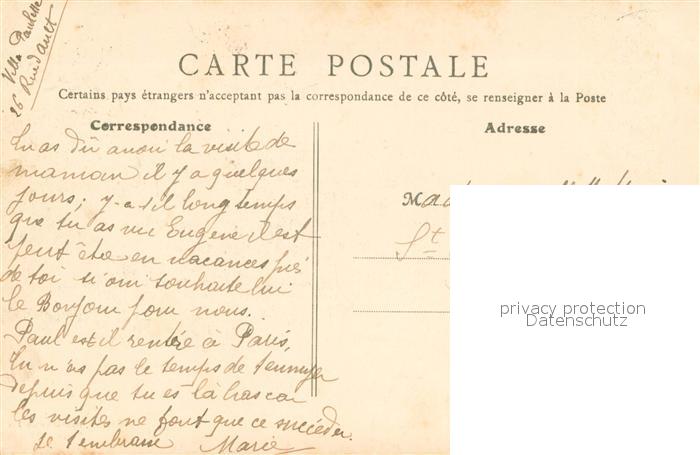 Villa Paulette
26 Rue d'Ault
CARTE POSTALE
Certains pays étrangers n'acceptant pas la correspondance de ce côté, se renseigner à la Poste
Correspondance
Adresse
Tu as dû avoir la visite de
maman il y a quelques
jours; y-a-t-il longtemps
que tu as vu Eugène il est
peut être en vacances près
de toi si oui souhaite lui
le Bonjour pour nous.
Paul est il rentré à Paris,
tu n'as pas le temps de t'ennuyer
depuis que tu es là bas car
les visites ne font que ce succéder.
Je t'embrasse Marie
Mad
St
privacy protection
Datenschutz